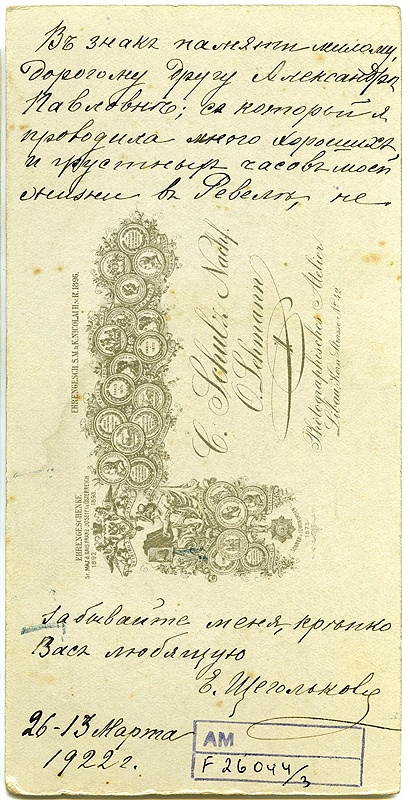 Въ знакъ памяти милому,
дорогому другу Александрѣ
Павловнѣ; съ который я
проводила много хорошихъ
и грустныхъ часовъ моей
жизни въ Ревелѣ, не
EHRENGESCH. S. M. d. K. NICOLAI II. v. R. 1896.
C. Schulz Nachf.
O. Lehmann
Photographisches Atelier
Libau, Korn Strasse № 42.
EHRENGESCHENKE
Sr. MAJ. d. KAIS. FRANZ JOSEF I. v. ÖSTERREICH
1892. 1893.
1873.
забывайте меня, крѣпко
Васъ любящую
Е. Щеголькову
26-13 Марта
1922 г.
AM
F 26044/3